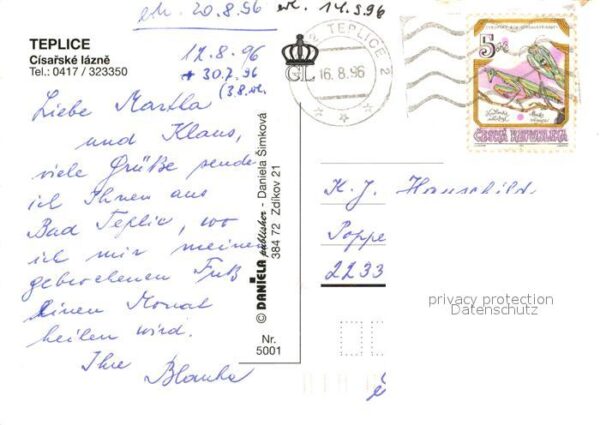 eh. 20.8.96 erl. 14.9.96
TEPLICE
Císařské lázně
Tel.: 0417 / 323350
12.8.96
* 30.7.96
(3.8.
GL
TEPLICE 2
16.8.96
5 Kčs
ČESKÁ REPUBLIKA
Liebe Martha
und Klaus,
viele Grüße sende
ich Ihnen aus
Bad Teplic, wo
ich mir meinen
gebrochenen Fuß
einen Monat
heilen wird.
Ihre
Blanka
© DANIELA publisher - Daniela Šimková
384 72 Zdíkov 21
Nr.
5001
K. J. Hauschild
Poppe
2233
privacy protection
Datenschutz